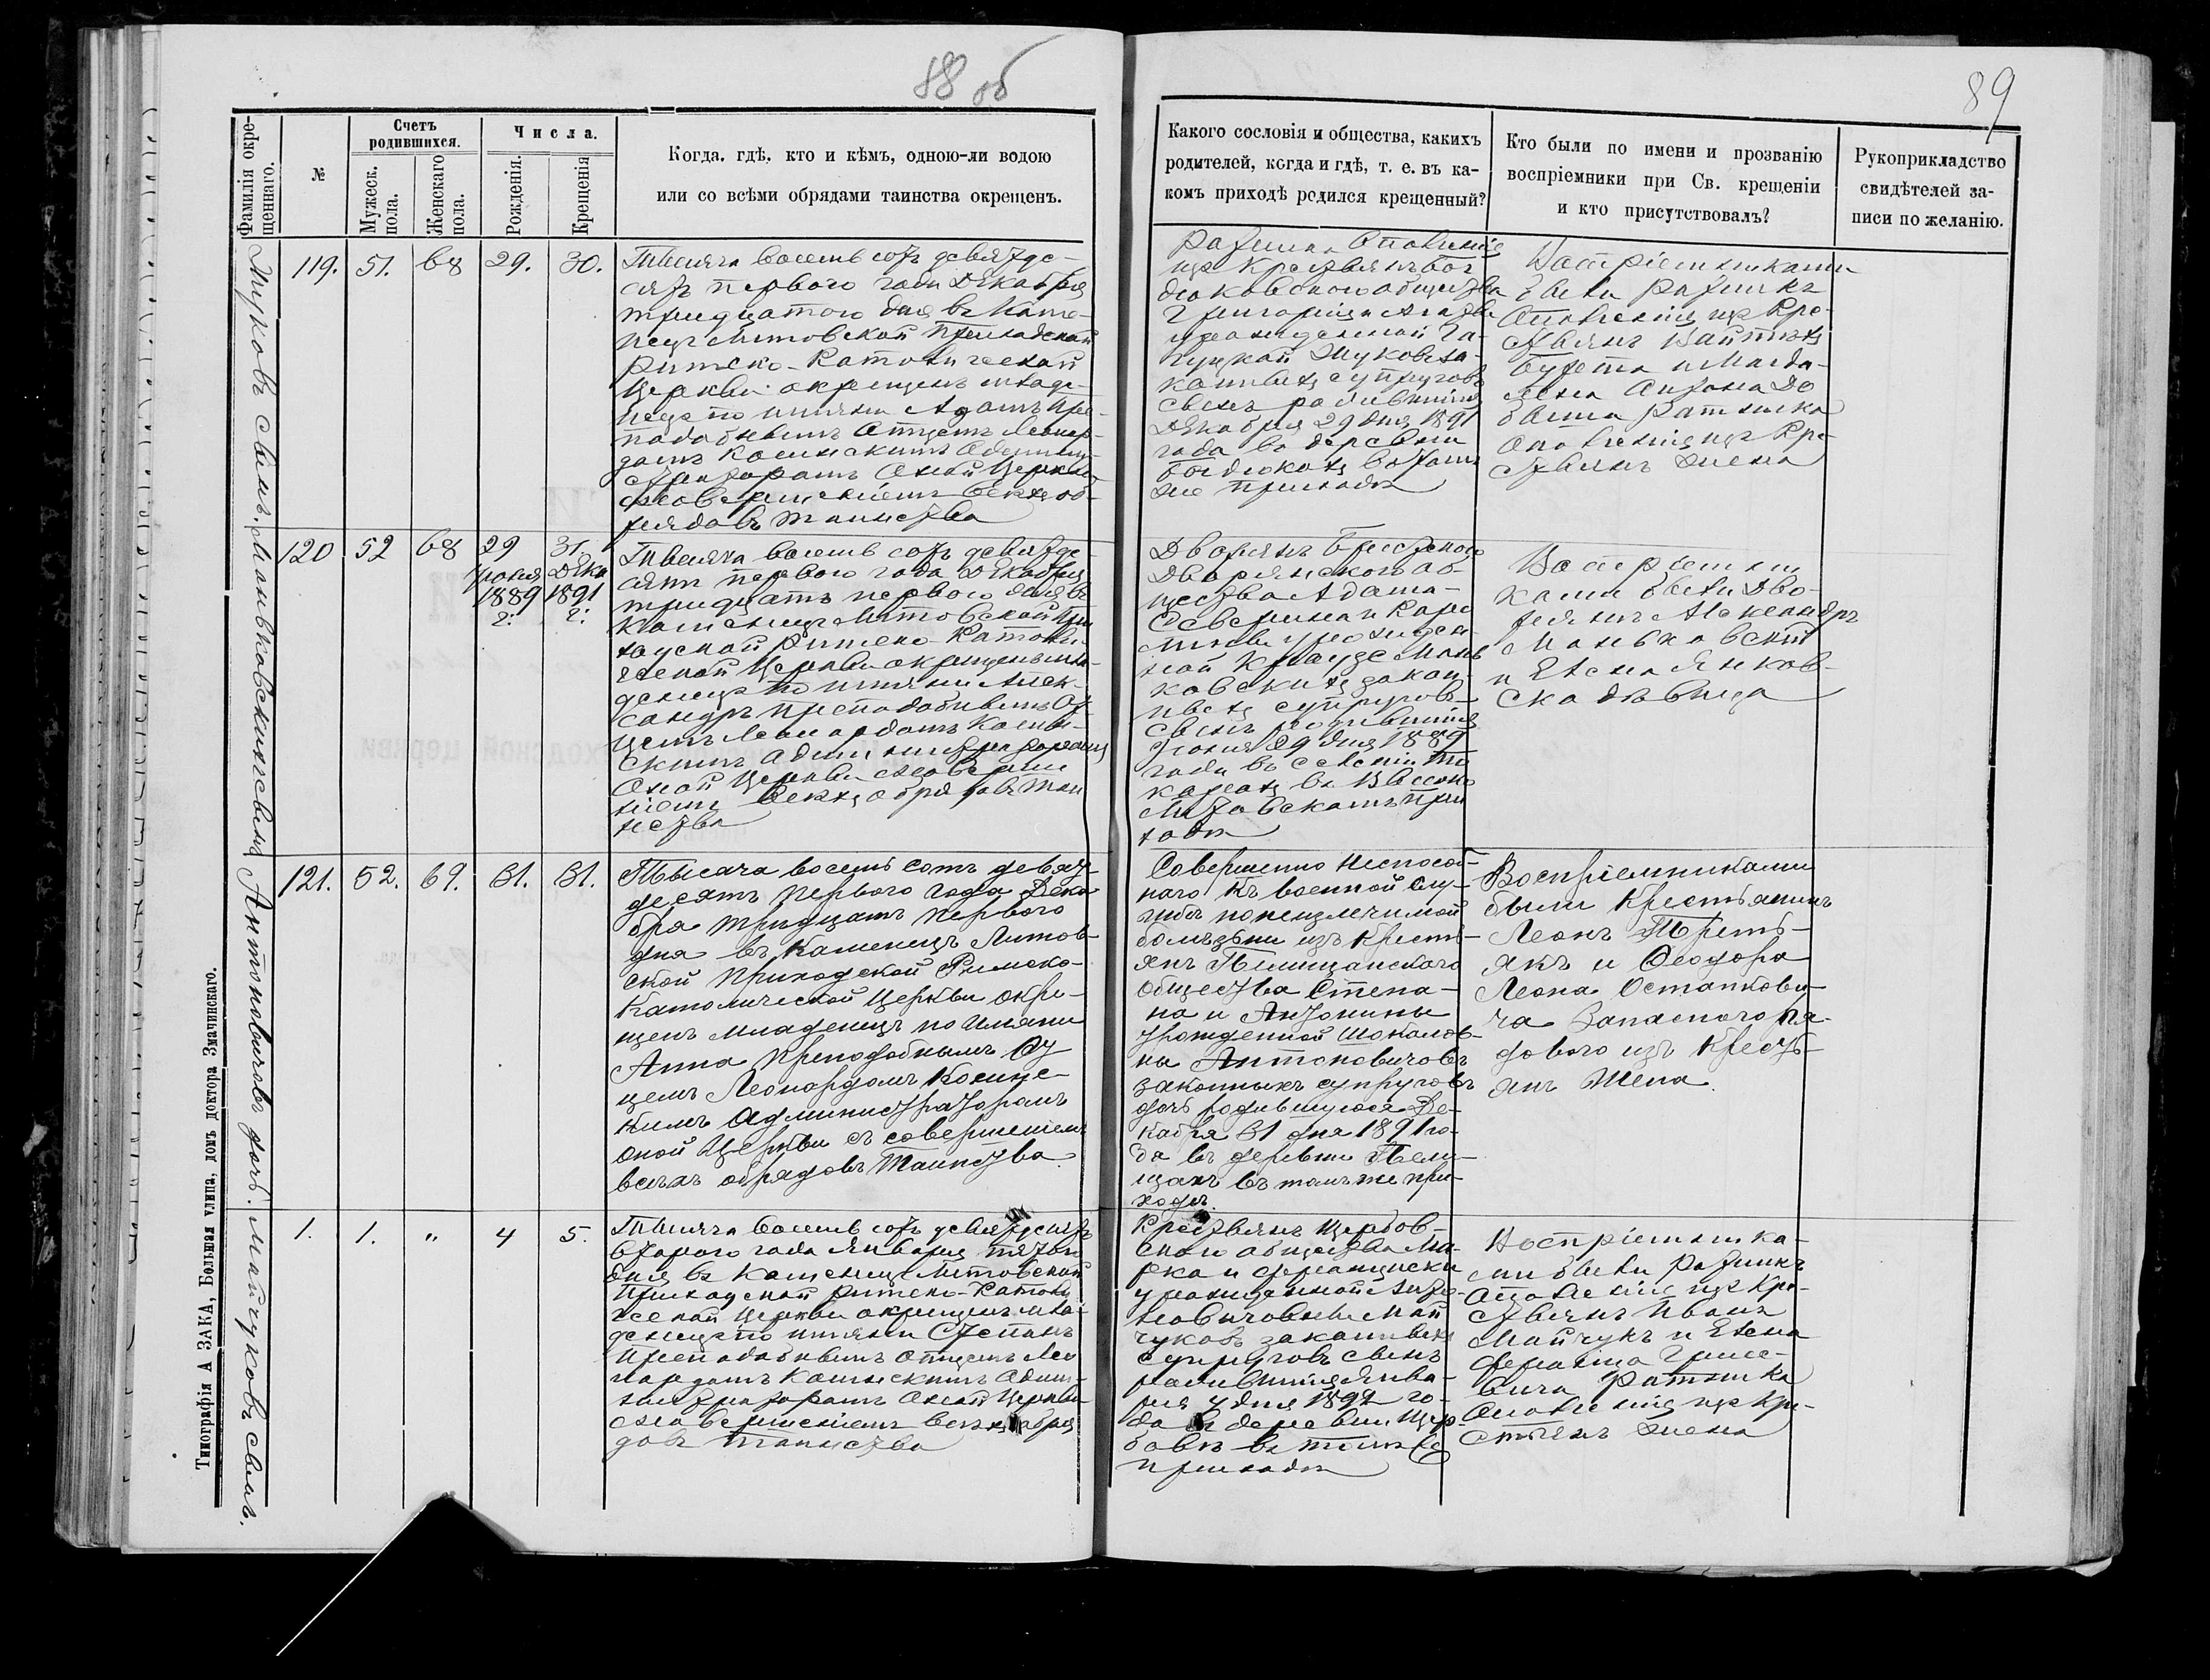 88 об
89
Фамилія окре-
щеннаго.
№
Счетъ
родившихся.
Мужеск.
пола.
Женскаго
пола.
Числа.
Рожденія.
Крещенія
Когда, гдѣ, кто и кѣмъ, одною-ли водою
или со всѣми обрядами таинства окрещенъ.
Какого сословія и общества, какихъ
родителей, когда и гдѣ, т. е. въ ка-
комъ приходѣ родился крещенный?
Кто были по имени и прозванію
воспріемники при Св. крещеніи
и кто присутствовалъ?
Рукоприкладство
свидѣтелей за-
писи по желанію.
Жуковъ сынъ.
119. 51. 68 29. 30.
Тысяча восемь сотъ девятде-
сятъ перваго года Декабря
тридцатого дня въ Каме-
нецъ Литовской Приходской
Римско-Католической
Церкви окрещенъ младе-
нецъ по имени Адамъ Пре-
подобнымъ Отцемъ Леонар-
домъ Администраторомъ Оной Церкви
съ совершеніемъ всѣхъ об-
рядовъ таинства
Ополченія
изъ Крестьянъ
общества
Григорія
урожденной Га-
Жуковыхъ за-
конныхъ супруговъ
сынъ родившійся
Декабря 29 дня 1891
года въ деревни
въ томъ
же приходѣ
Воспріемниками
были Ратникъ
Ополченія изъ Кре-
стьянъ
и Магда-
лена
Ратника
Ополченія изъ Кре-
стьянъ Жена
Маньковскихъ сынъ
120 52 68 29 31.
Іюня Дека
1889 1891
г. г.
Тысяча восемь сотъ девятде-
сятъ перваго года Декабря
тридцать перваго дня въ
Каменецъ Литовской При
ходской Римско Католи
ческой Церкви окрещенъ мла-
денецъ по имени Алек-
сандръ Преподобнымъ От
цемъ Леонардомъ
Администраторомъ
Оной Церкви съ соверше
ніемъ всѣхъ обрядовъ Таи
нства
Дворянъ Брестскаго
Дворянскаго об-
щества Адама-
Северина и
урожден-
ной Маньк
ковскихъ закон-
ныхъ супруговъ
сынъ родившійся
Іюня 29 дня 1889
года въ селеніи
въ Высоко
Литовскомъ при
ходѣ
Воспріемни
ками были Дво-
рянинъ Александръ
Маньковскій
и Елена Янков-
ска дѣвица
Антоновичовъ дочь.
121. 52. 69. 31. 31.
Тысяча восемь сотъ девят-
десятъ перваго года Дека
бря тридцать перваго
дня въ Каменецъ Литов-
ской Приходской Римско-
Католической Церкви окре-
щенъ младенецъ по имени
Анна Преподобнымъ От
цемъ Леонардомъ
Администраторомъ
Оной Церкви съ совершеніемъ
всѣхъ обрядовъ Таинства.
Совершенно неспособ-
наго къ военной слу-
жбѣ по неизлечимой
болѣзни изъ кресть-
янъ Пелищанскаго
общества Степа-
на и Антонины
урожденной
Антоновичовъ
законныхъ супруговъ
дочь родившуюся Де-
кабря 31 дня 1891 го-
да въ деревни Пели-
щахъ въ томъ же при-
ходѣ.
Воспріемниками
были Крестьянинъ
Леонъ Треть-
якъ и Феодора
Леона Остапкови-
ча Запаснаго ря-
дового изъ Кресть-
янъ Жена.
Майчуковъ сынъ.
1. 1. " 4 5.
Тысяча восемь сотъ девятдесятъ
второго года Января пятого
дня въ Каменецъ Литовской
Приходской Римско-Католи
ческой Церкви окрещенъ мла-
денецъ по имени Степанъ
Преподобнымъ Отцемъ Лео
нардомъ Админи-
страторомъ Оной Церкви
съ совершеніемъ всѣхъ обря
довъ таинства
Крестьянъ Щербов-
скаго общества Ма-
рка и Франциски
урожденной
Май
чуковъ законныхъ
супруговъ сынъ
родившійся Янва-
ря 4 дня 1892 го-
да въ деревни Щер-
бовѣ въ томъ же
приходѣ
Воспріемника-
ми были Ратникъ
Ополченія изъ Кре-
стьянъ Иванъ
Майчукъ и Елена
Ратника
Ополченія изъ Кре-
стьянъ Жена
Типографія А ЗАКА, Большая улица, домъ доктора Змачинскаго.